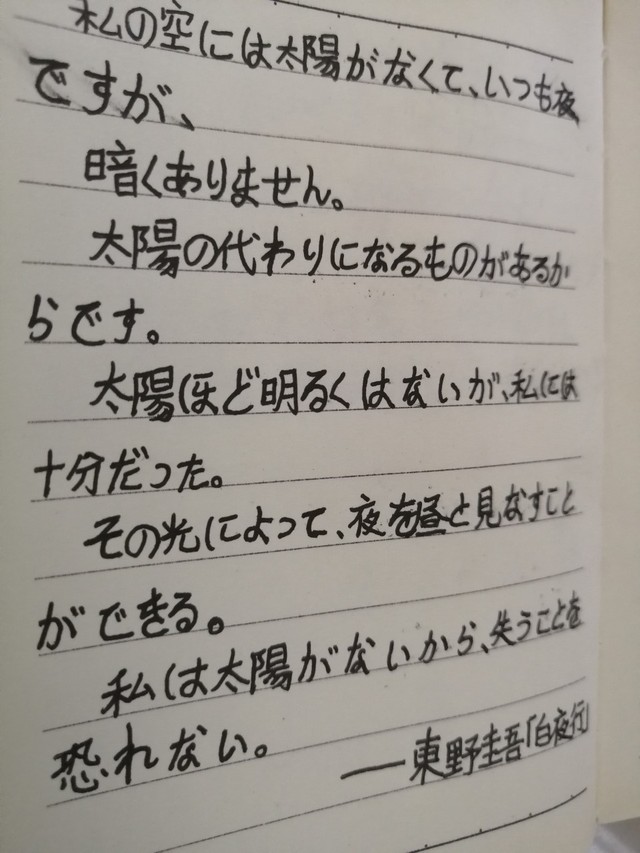 私の空には太陽がなくて、いつも夜
ですが、
暗くありません。
太陽の代わりになるものがあるか
らです。
太陽ほど明るくはないが、私には
十分だった。
その光によって、夜を昼と見なすこと
ができる。
私は太陽がないから、失うことを
恐れない。
——東野圭吾「白夜行」